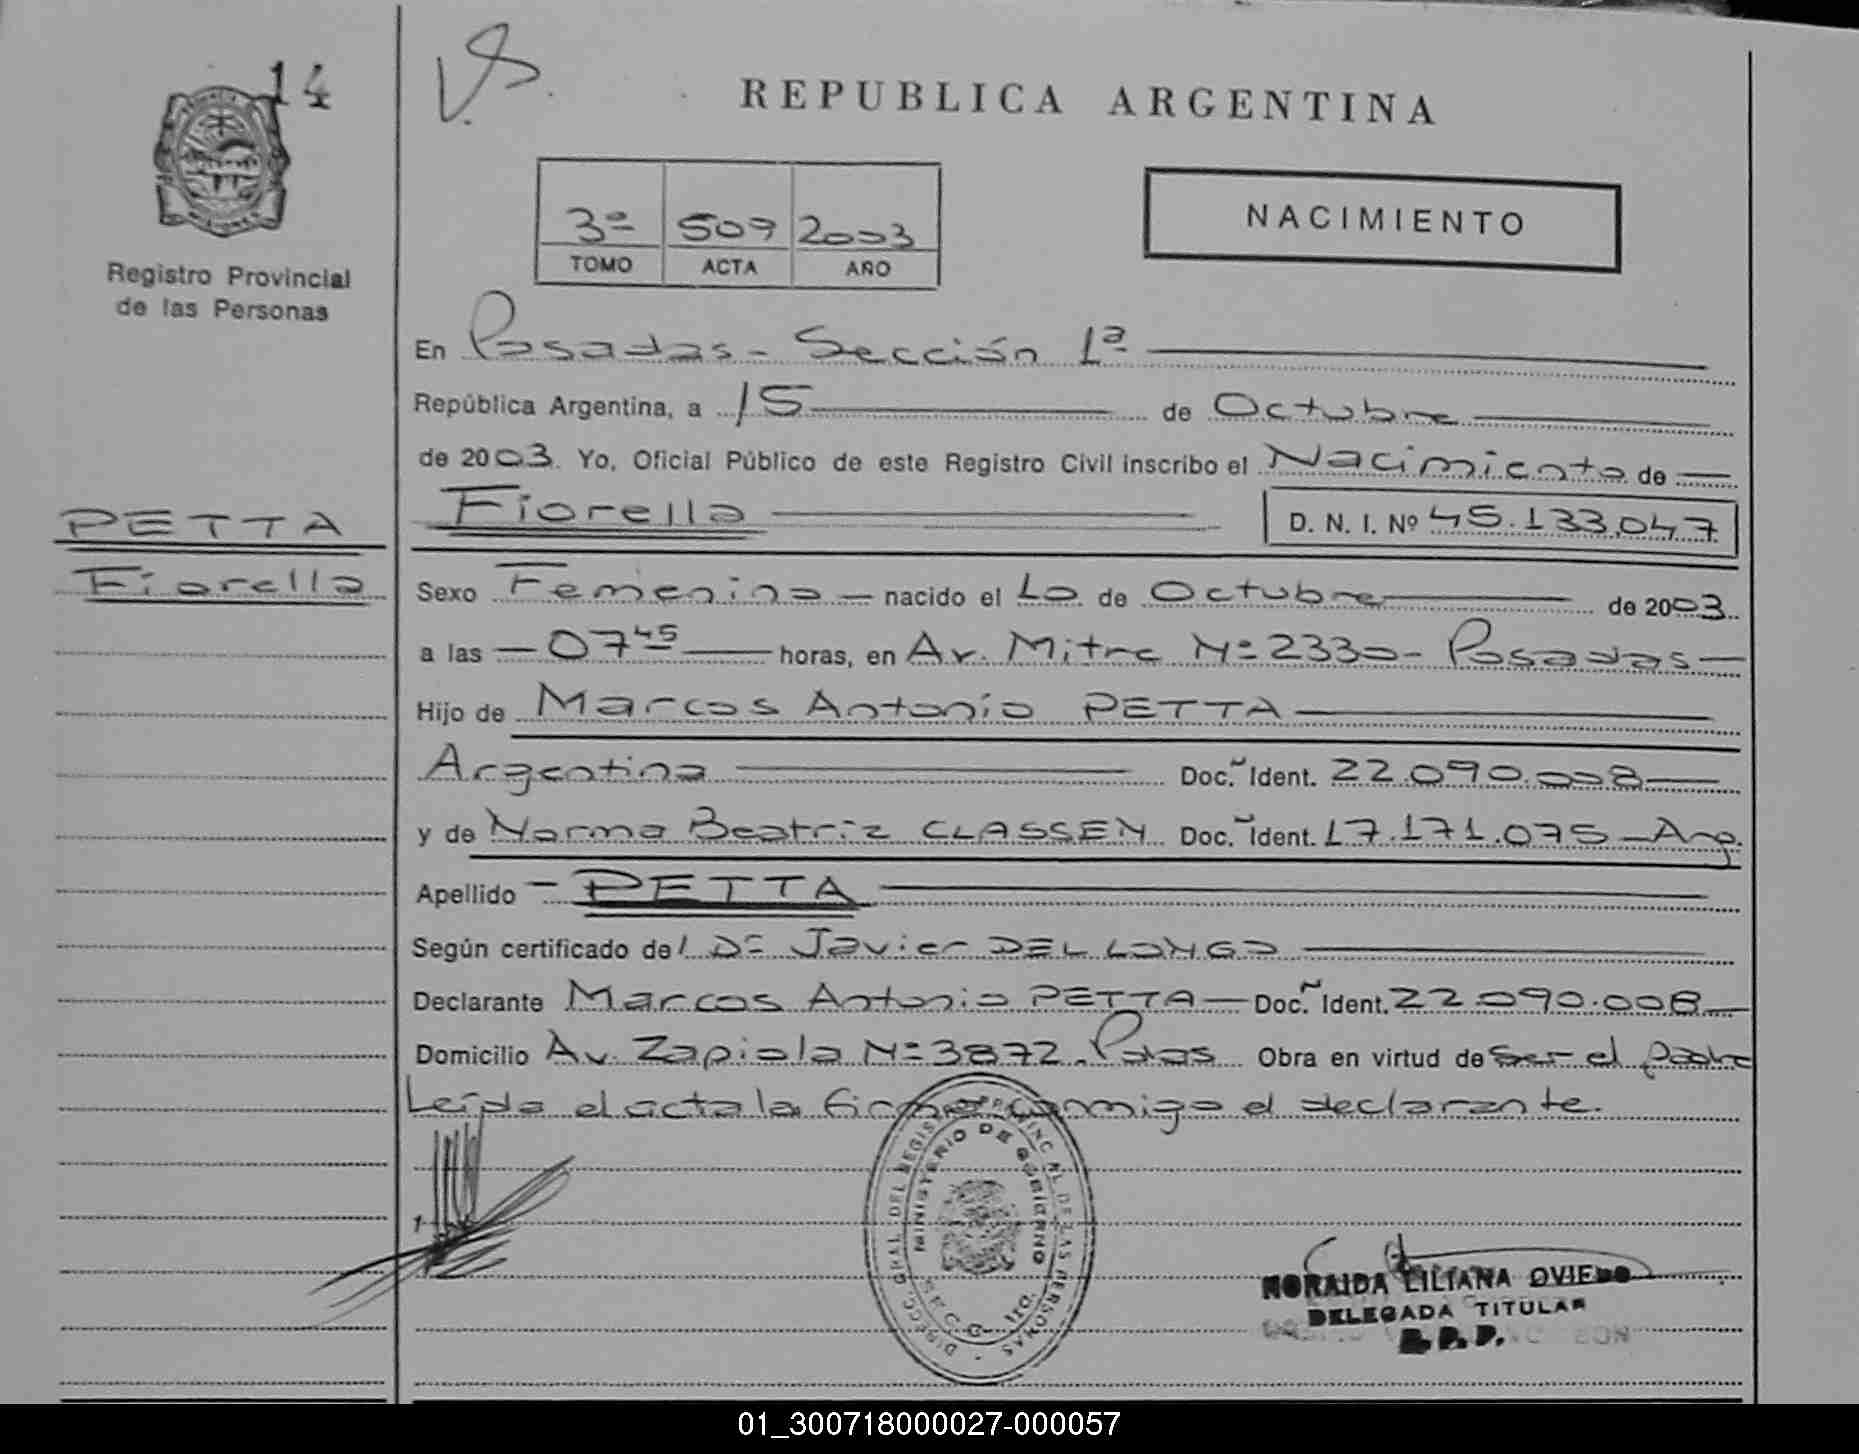 14
REPUBLICA ARGENTINA
3º 509 2003
TOMO ACTA AÑO
NACIMIENTO
Registro Provincial
de las Personas
En Posadas - Sección 1ª
República Argentina, a 15 de Octubre
de 2003. Yo, Oficial Público de este Registro Civil inscribo el Nacimiento de
Fiorella D. N. I. Nº 45.133.047
PETTA
Fiorella
Sexo Femenino nacido el 10 de Octubre de 2003
a las 07 45 horas, en Av. Mitre Nº 2330 - Posadas
Hijo de Marcos Antonio PETTA
Argentina Doc. Ident. 22.090.008
y de Norma Beatriz CLASSEN Doc. Ident. 17.171.075 - Arg.
Apellido PETTA
Según certificado de / Dr Javier DEL LONGO
Declarante Marcos Antonio PETTA Doc. Ident. 22.090.008
Domicilio Av. Zapiola Nº 3872 - Pdas Obra en virtud de ser el padre
Leída el acta la firma conmigo el declarante.
DIRECC. GRAL. DEL REGISTRO PROVINCIAL DE LAS PERSONAS
MINISTERIO DE GOBIERNO
NORAIDA LILIANA OVIEDO
DELEGADA TITULAR
R. P. P.
01_300718000027-000057